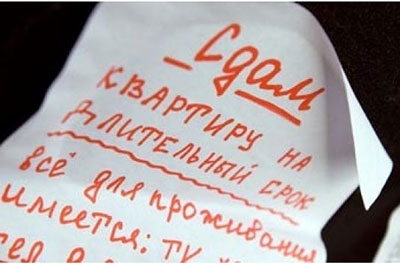 Сдам
КВАРТИРУ НА
ДЛИТЕЛЬНЫЙ СРОК
всё для проживания
имеется: TV